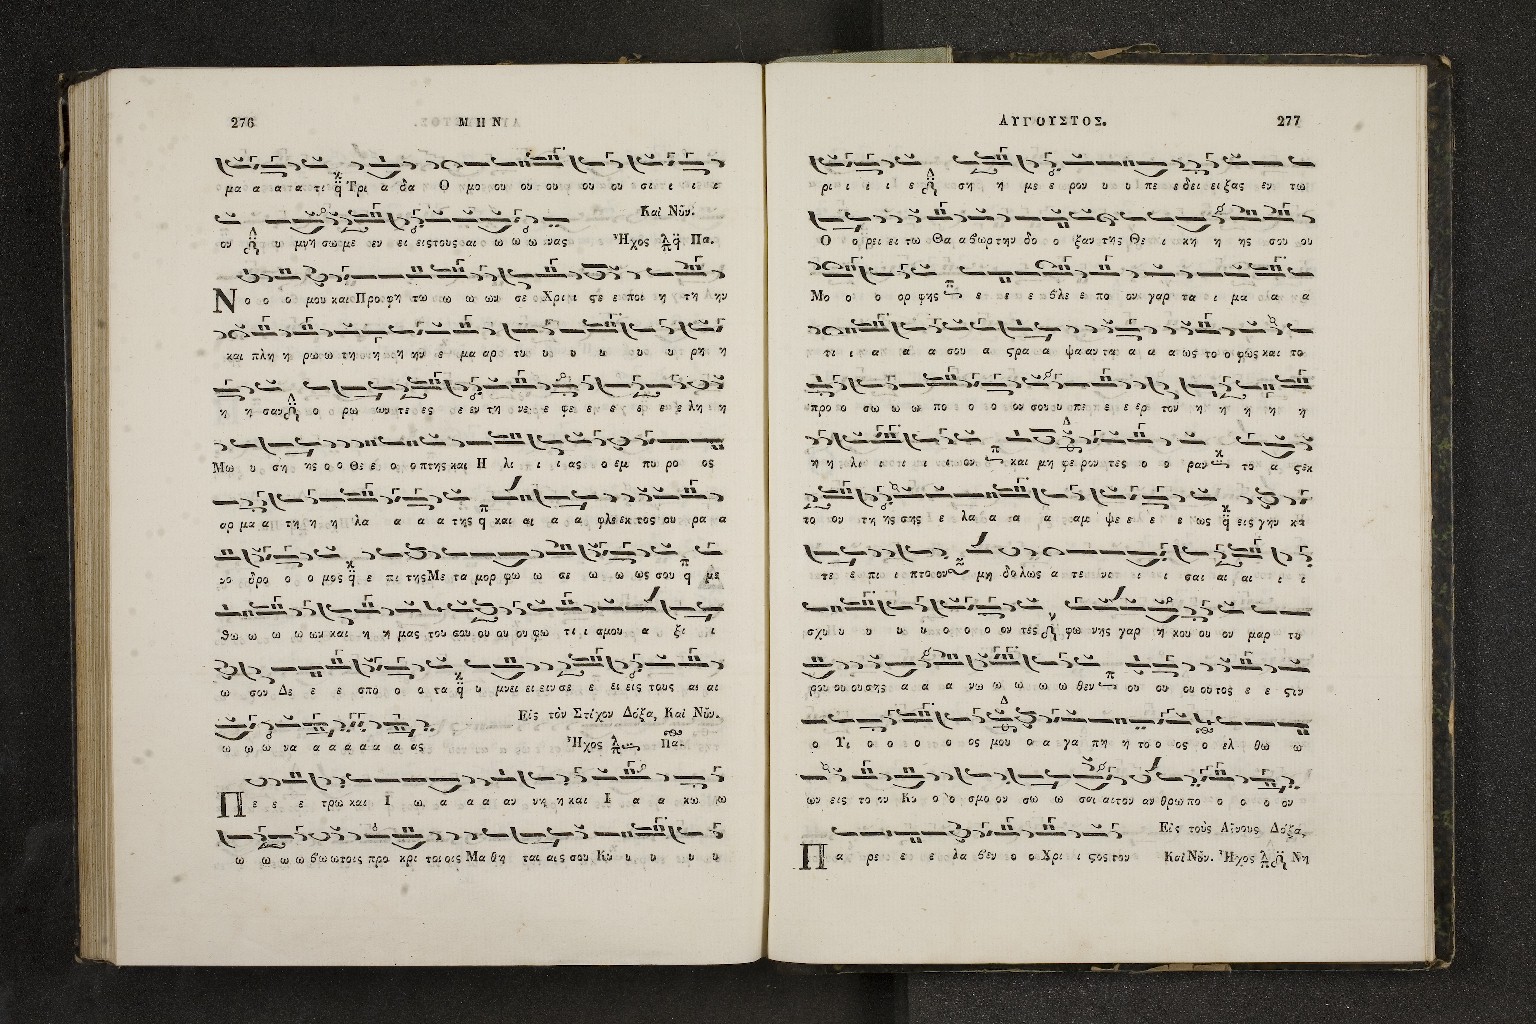 276
ΜΗΝ
μα α α α τι Τρι α δα Ο μο ου ου ου ου ου σι ι ι ι
Καὶ Νῦν.
ον υ μνη σω με εν ει εις τους αι ω ω ω νας Ἦχος Πα.
Νο ο ο μου και Προ φη τω ω ω ων σε Χρι ι ϛε ε ποι η τη ην
και πλη η ρω ω τη η η ην ε μα αρ τυ υ υ υ υ υ ρη η
η η σαν ο ρω ων τε ες ε εν τη νε ε φε ε ε ε ε ε λη η
Μω υ ση ης ο ο Θε ε ο ο πτης και Η λι ι ι ας ο εμ πυ ρο ος
αρ μα α τη η η λα α α α της και αι α α φλε εκ τος ου ρα α
νο δρο ο ο μος ε πι της Με τα μορ φω ω σε ω ω ως σου με
θω ω ω ω ων και η η μας του σου ου ου ου φω τι ι σμου α ξι ι
ω σον Δε ε ε σπο ο ο τα υ μνει ει ειν σε ε ει εις τους αι αι
Εἰς τὸν Στίχον Δόξα, Καὶ Νῦν.
ω ω ω να α α α α α ας Ἦχος Πα.
Πε ε ε τρω και Ι ω α α α αν νη η και Ι α α κω ω
ω ω ω ω βω ω τοις προ κρι τοι οις Μα θη ται αις σου Κυ υ υ υ υ
ΑΥΓΟΥΣΤΟΣ.
277
ρι ι ι ι ε ση η με ε ρον υ υ πε ε δει ει ξας εν τω
Ο ο ρει ει τω Θα α βωρ την δο ο ξαν της Θε ι κη η ης σου ου
Μο ο ο ορ φης ε ε ε βλε ε πο ον γαρ τα ι μα α α
τι ι α α α σου α ϛρα α ψα αν τα α α α ως το ο φως και το
προ ο σω ω ω πο ο ο ον σου υ πε ε ε ερ τον η η η η η
η η λι ι ι ι ι ον και μη φε ρον τες ο ο ραν το α ϛεκ
το ον τη ης σης ε λα α α α αμ ψε ε ε ε ως εις γην κα
τε ε πι ι πτο ον μη δο λως α τε νι ι ι σαι αι αι ι ι
σχυ υ υ υ υ ο ο ο ον τες φω νης γαρ η κου ου ον μαρ τυ
ρου ου ου σης α α α νω ω ω ω ω θεν ου ου ου ου τος ε ε ϛιν
ο Τι ο ο ο ο ος μου ο α γα πη η το ο ος ο ελ θω ω
ων εις το ον Κο ο ο σμο ον σω ω σαι αι τον αν θρω πο ο ο ο ον
Εἰς τοὺς Αἴνους, Δόξα,
Πα ρε ε ε λα βεν ο ο Χρι ι ϛος τον Καὶ Νῦν. Ἦχος Νη